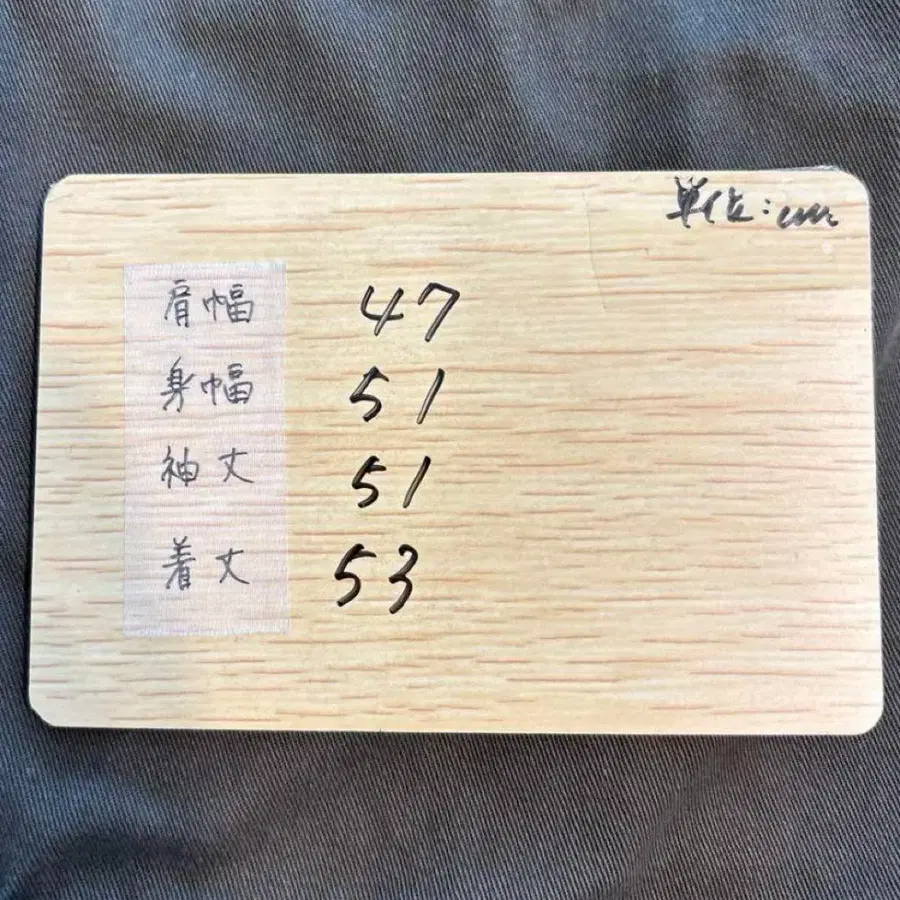 単位:cm
肩幅 47
身幅 51
袖丈 51
着丈 53